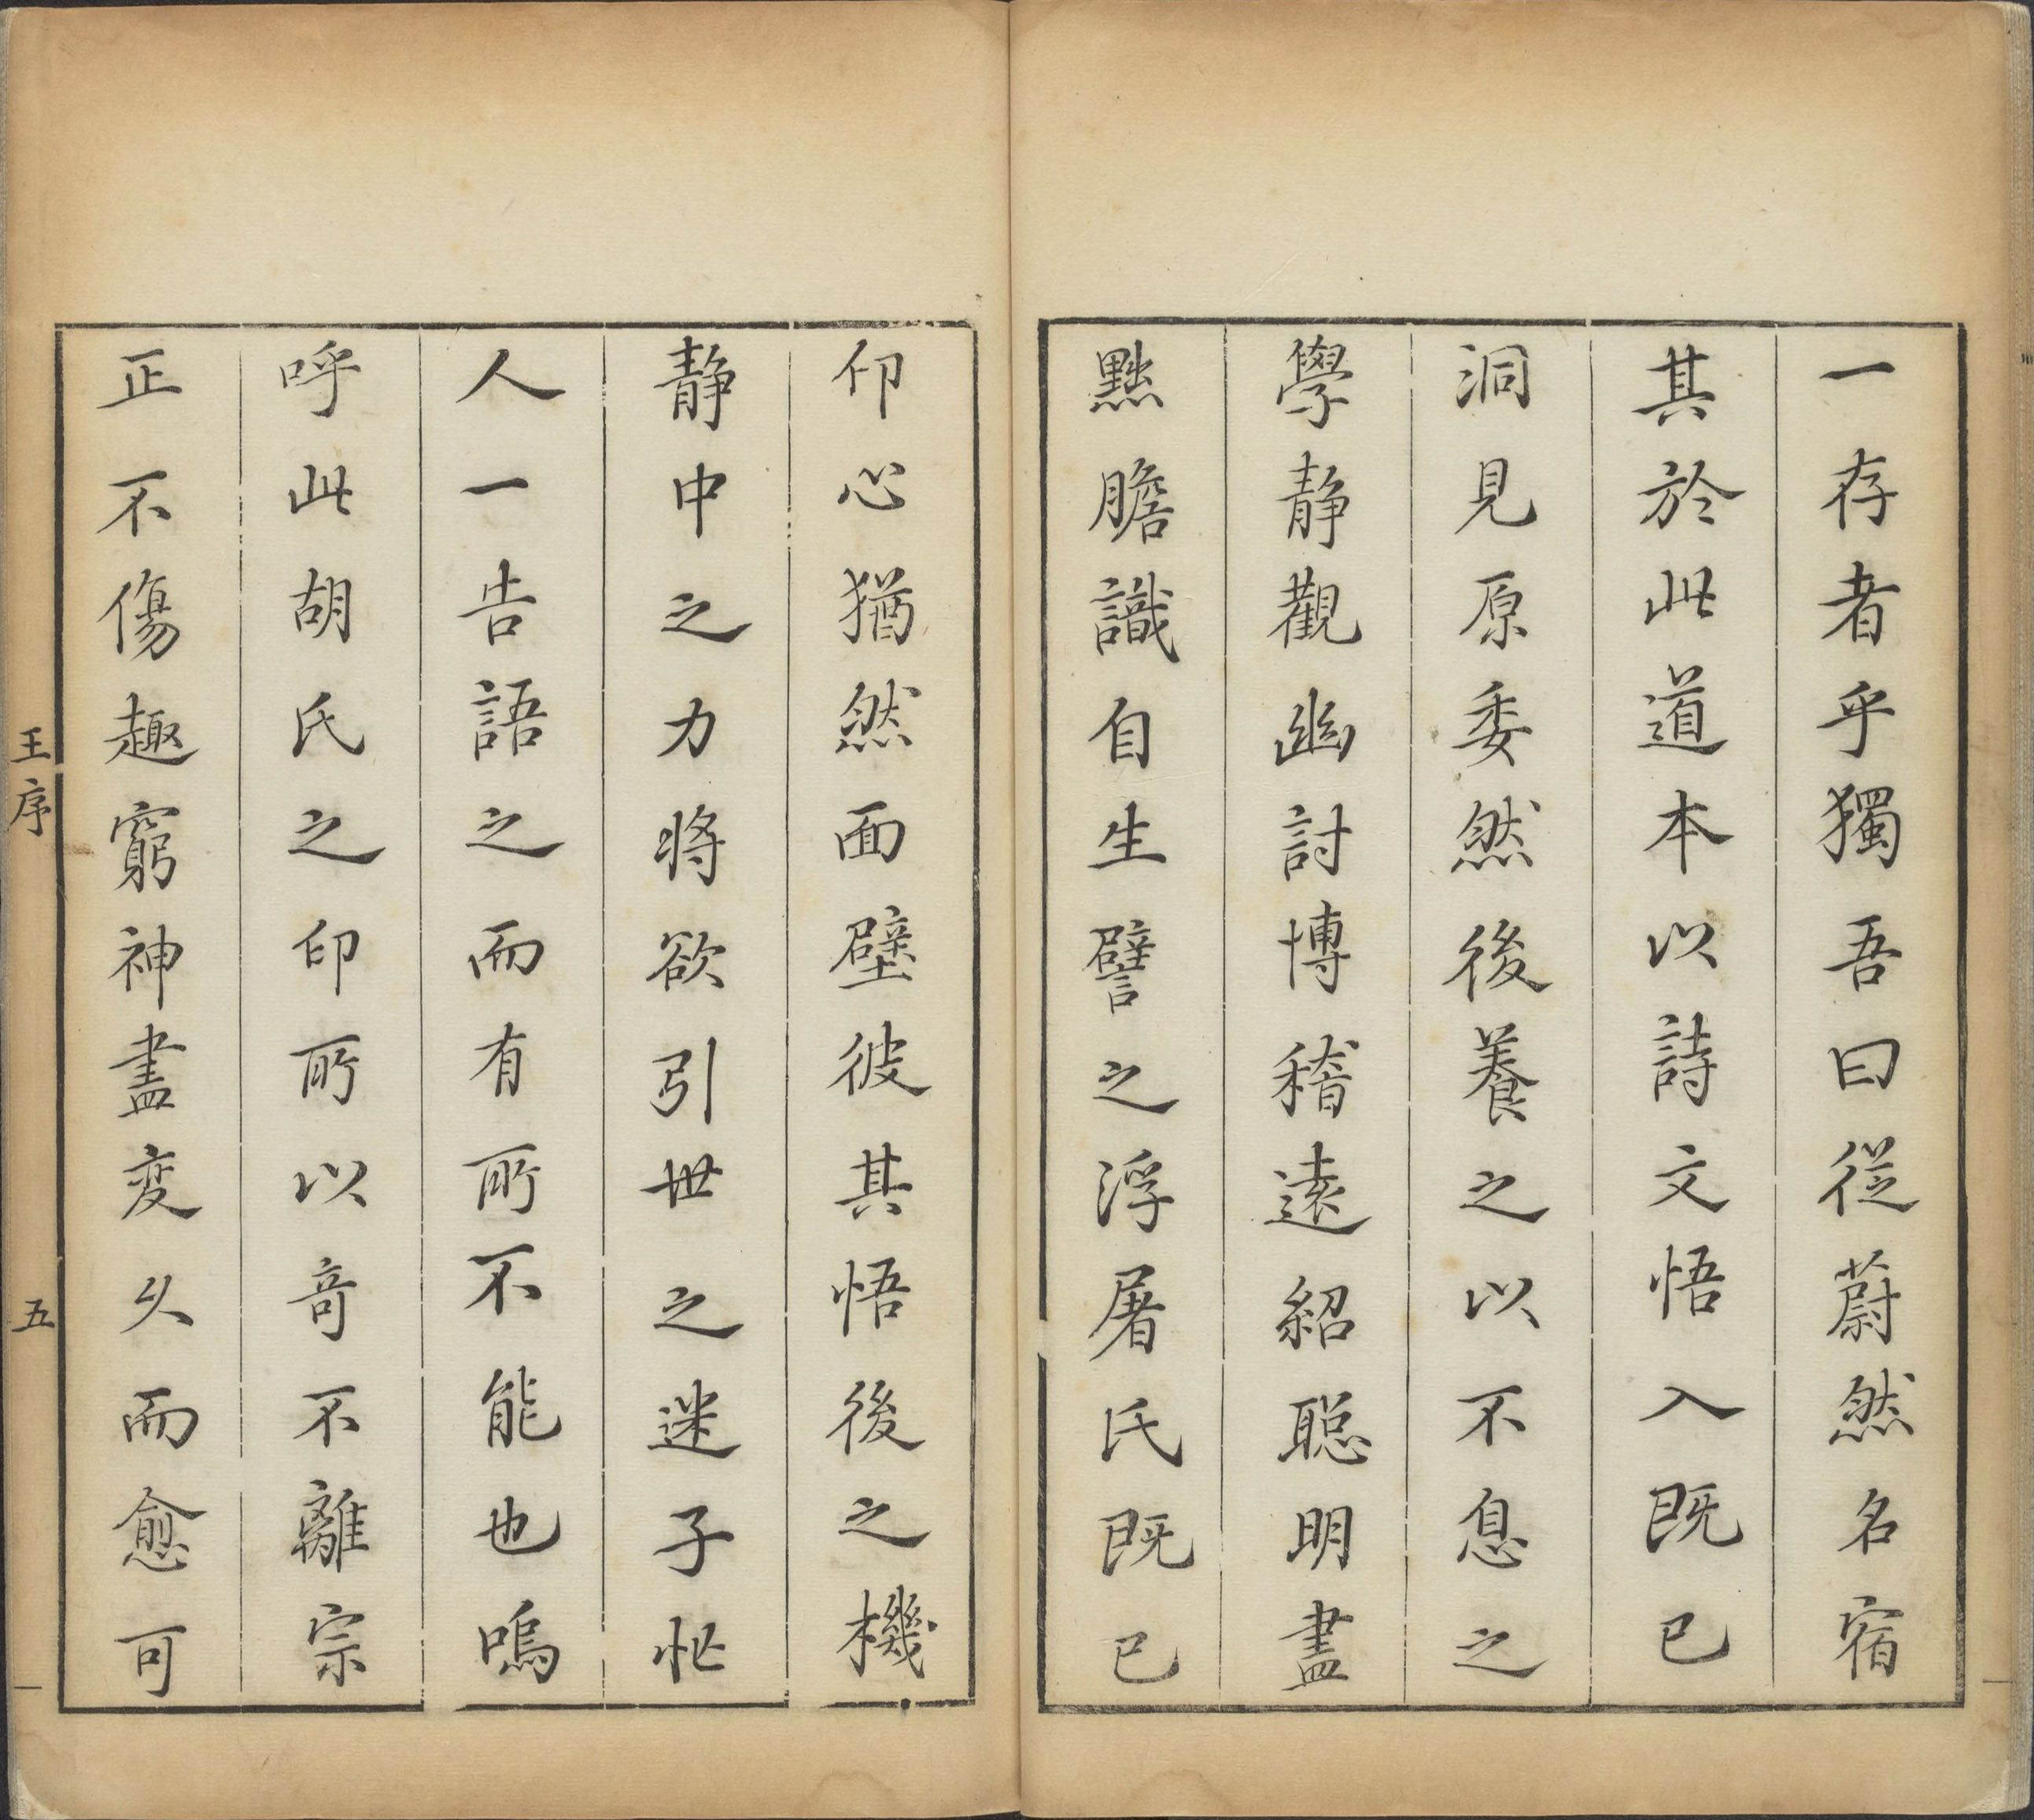 一存者乎獨吾曰從蔚然名宿
其於此道本以詩文悟入既已
洞見原委然後養之以不息之
學静觀幽討博稽遠紹聡明盡
黜膽識自生譬之浮屠氏既已
印心猶然面壁彼其悟後之機
静中之力将欲引世之迷子忙
人一告語之而有所不能也嗚
呼此胡氏之印所以竒不離宗
正不傷趣窮神盡変久而愈可
王序
五